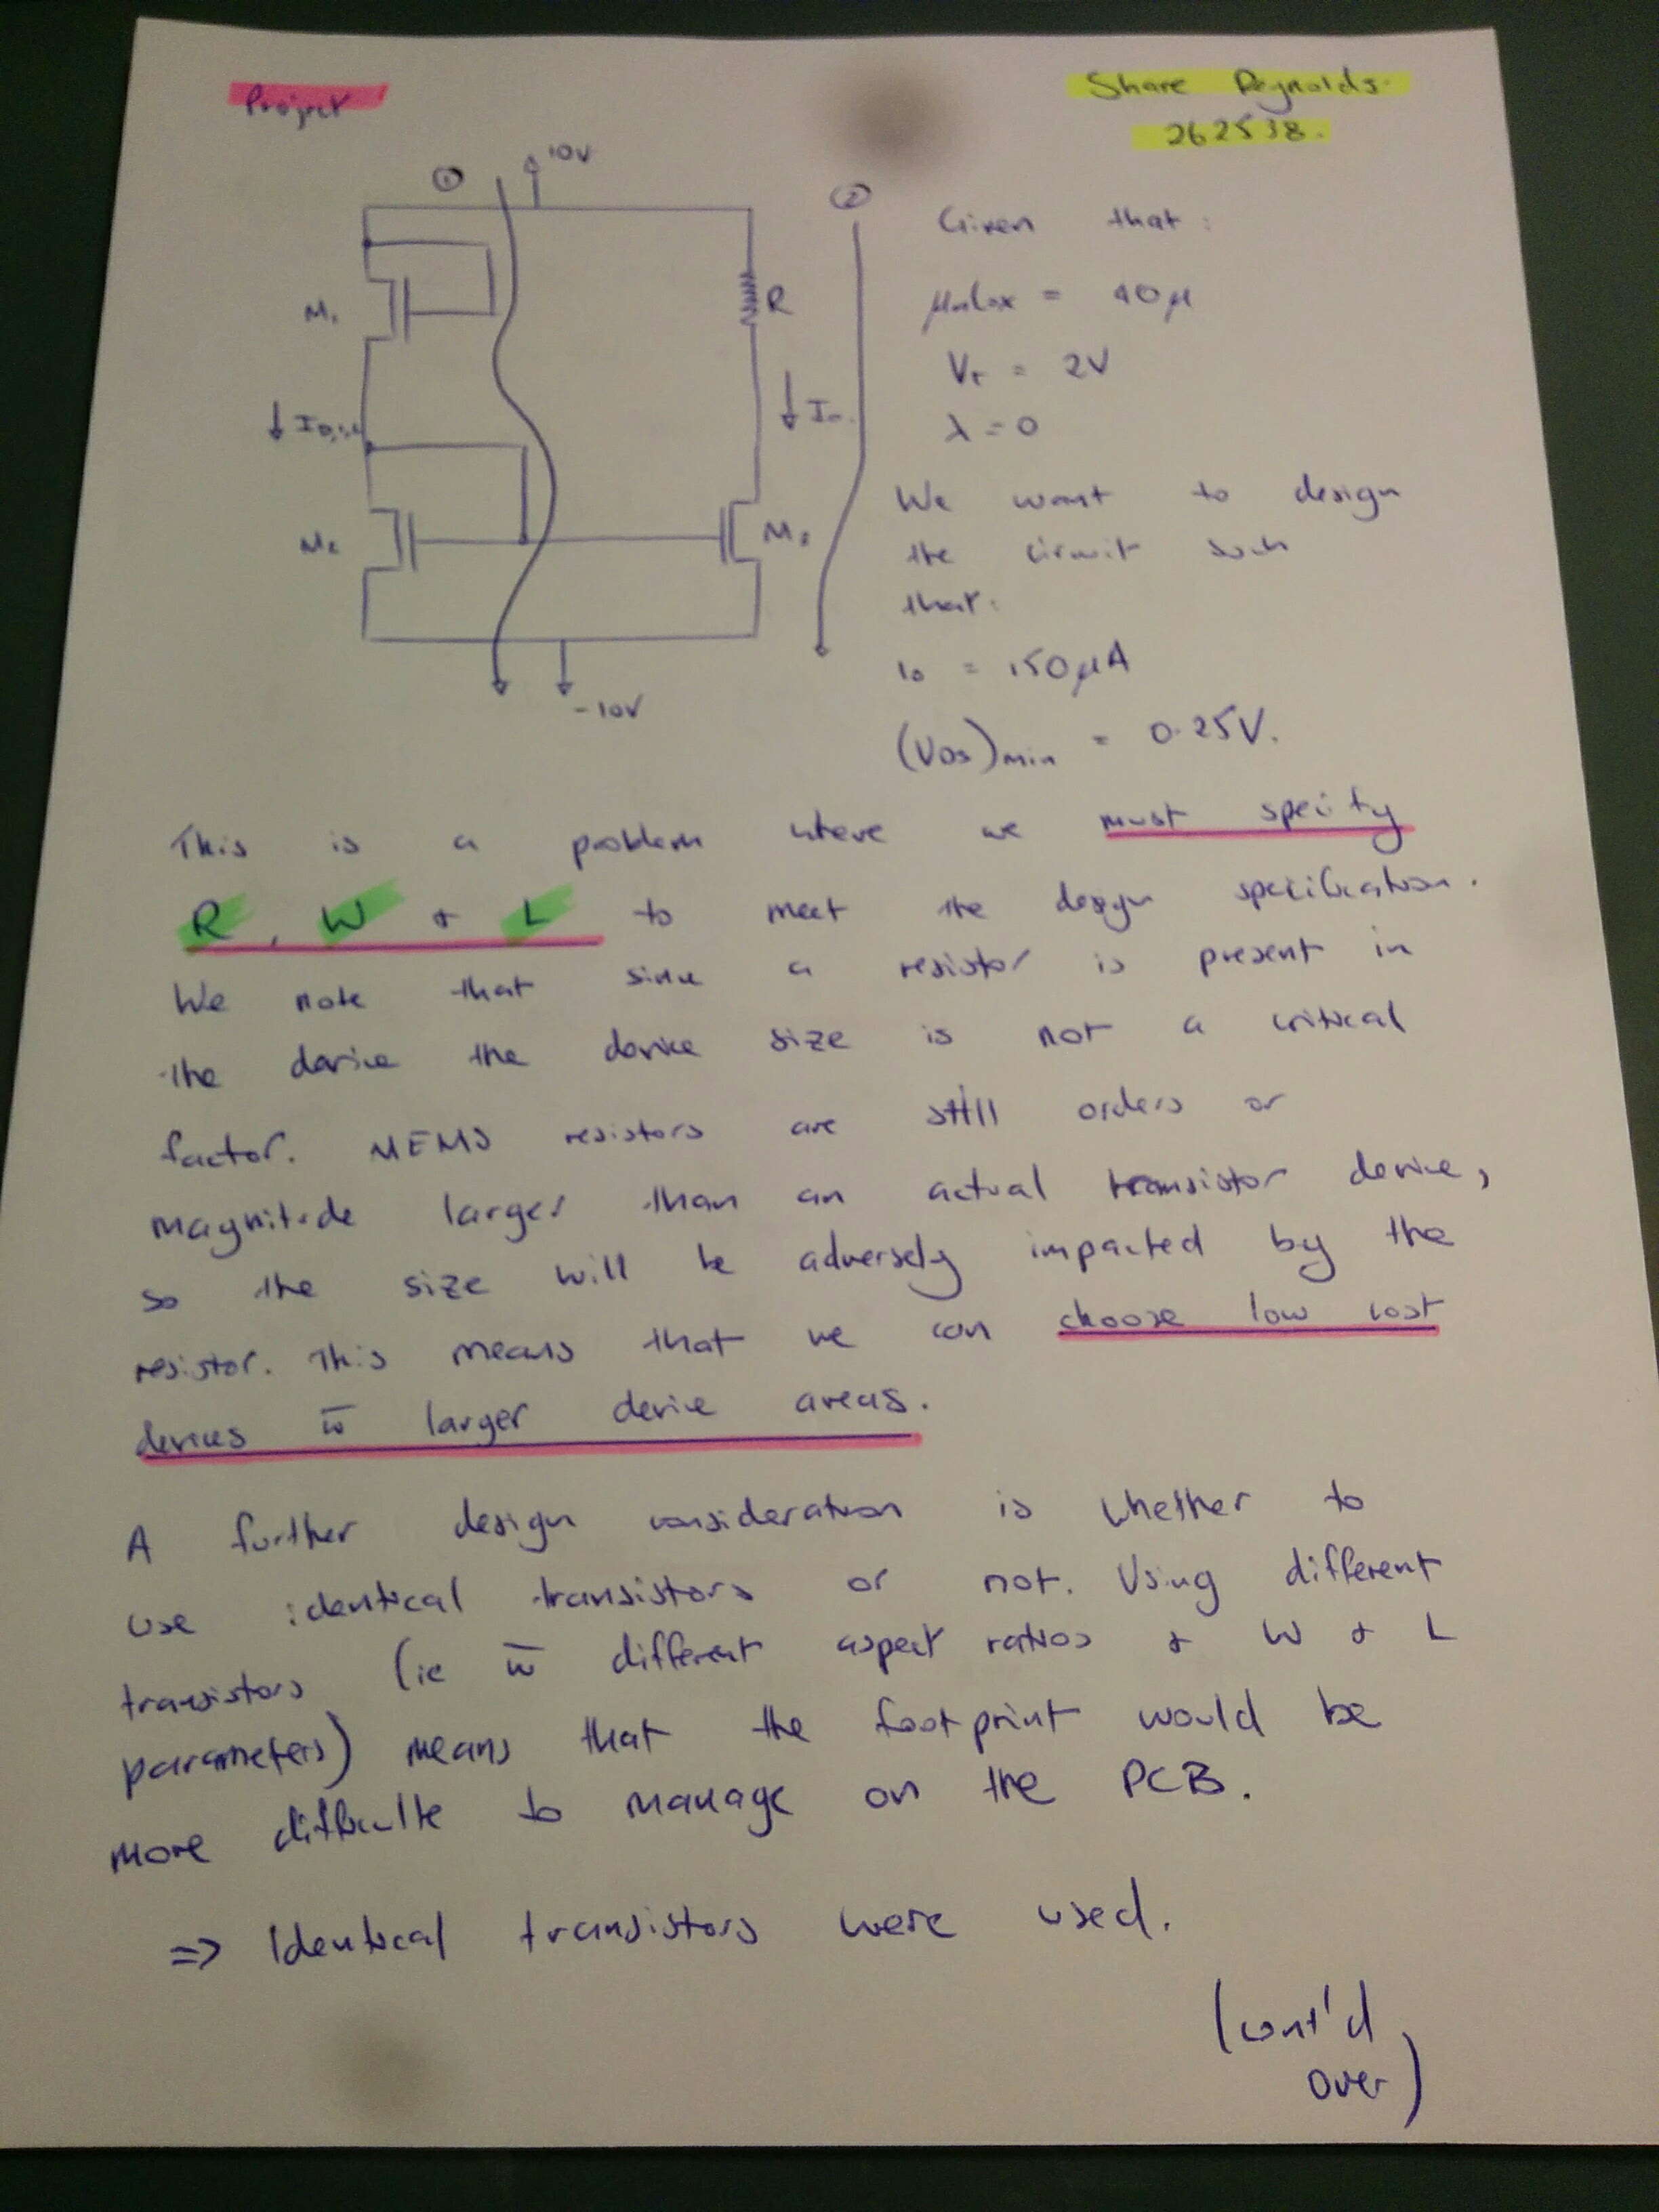 Project
Share Reynolds.
262538.
①
10V
②
M₁
R
I₀
M₂
M₃
-10V
Given that:
μnCox = 40μ
V_T = 2V
λ = 0
We want to design
the circuit such
that:
I₀ = 150μA
(VDS)min = 0.25V.
This is a problem where we must specify
R, W & L to meet the design specification.
We note that since a resistor is present in
the device the device size is not a critical
factor. MEMS resistors are still orders or
magnitude larger than an actual transistor device,
so the size will be adversely impacted by the
resistor. This means that we can choose low cost
devices w̄ larger device areas.
A further design consideration is whether to
use identical transistors or not. Using different
transistors (ie w̄ different aspect ratios & W & L
parameters) means that the footprint would be
more difficulte to manage on the PCB.
=> Identical transistors were used.
(cont'd
over)